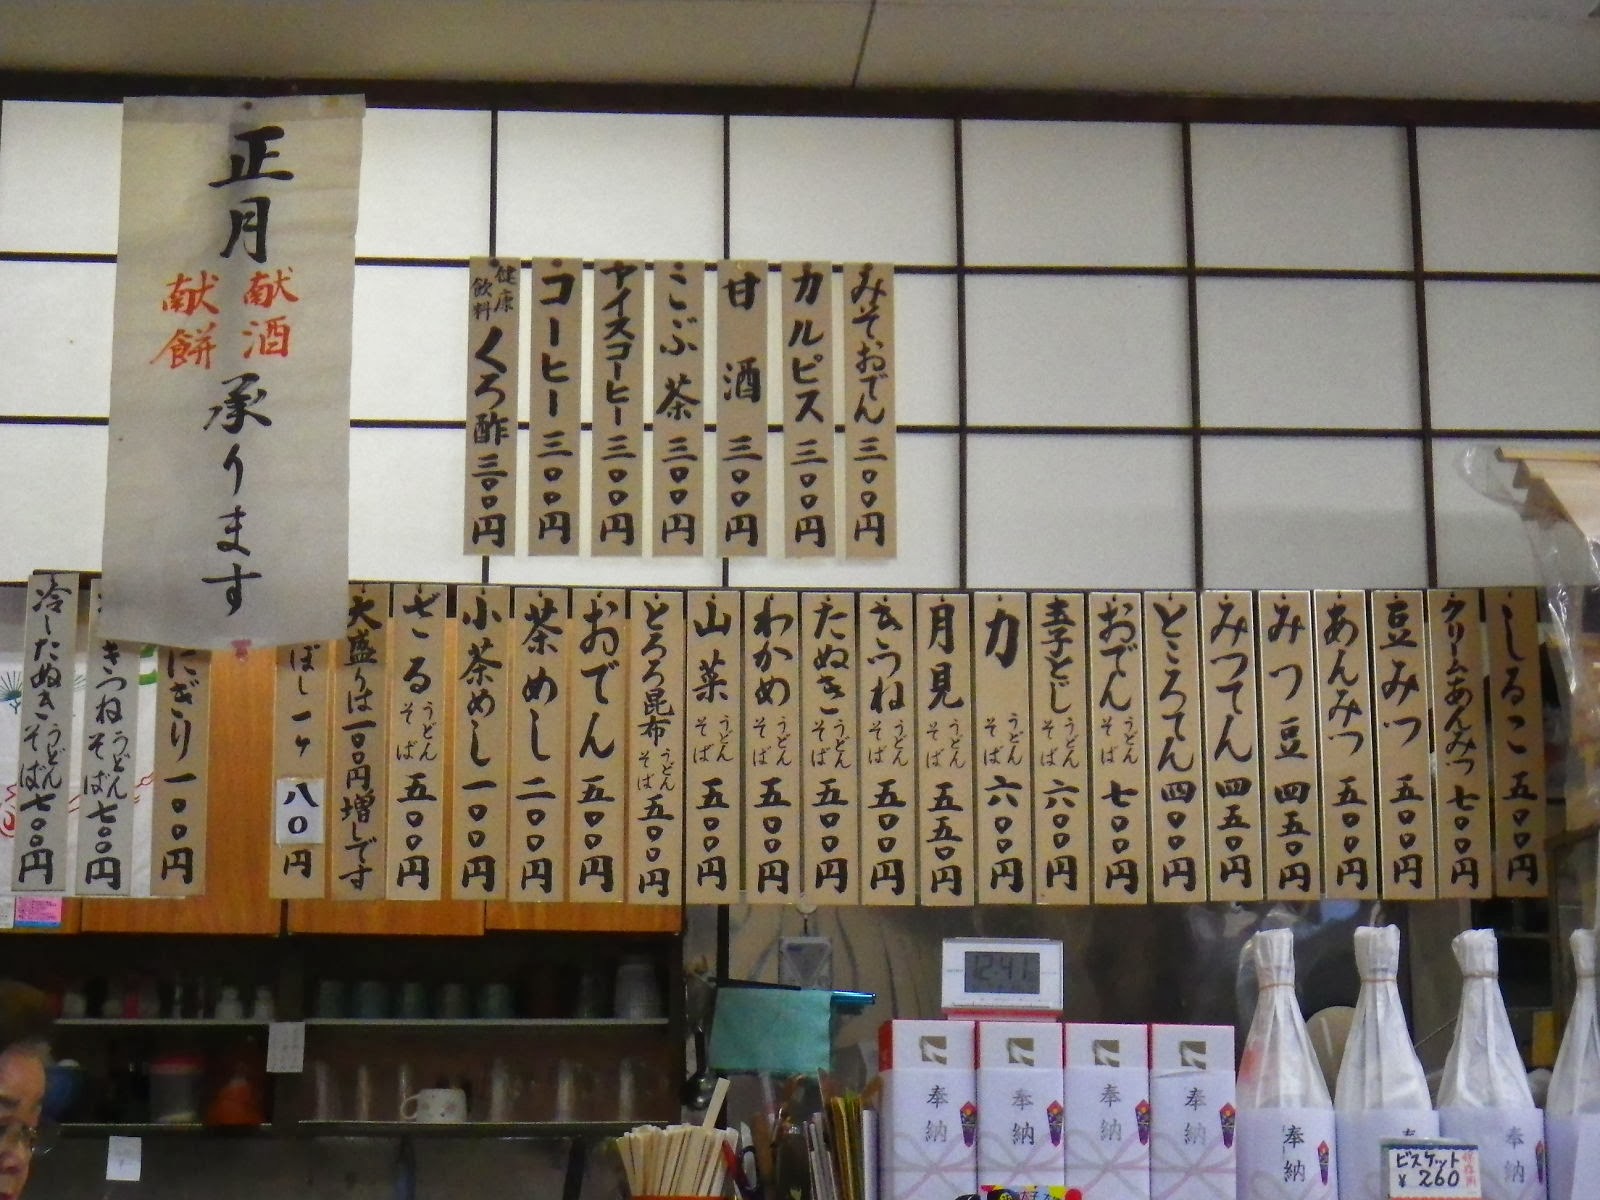 正月
献酒
献餅
承ります
みそおでん 三〇〇円
カルピス 三〇〇円
甘酒 三〇〇円
こぶ茶 三〇〇円
アイスコーヒー 三〇〇円
コーヒー 三〇〇円
健康飲料 くろ酢 三〇〇円
しるこ 五〇〇円
クリームあんみつ 七〇〇円
豆みつ 五〇〇円
あんみつ 五〇〇円
みつ豆 四五〇円
みつてん 四五〇円
ところてん 四〇〇円
おでん うどん そば 七〇〇円
玉子とじ うどん そば 六〇〇円
力 うどん そば 六〇〇円
月見 うどん そば 五五〇円
きつね うどん そば 五〇〇円
たぬき うどん そば 五〇〇円
わかめ うどん そば 五〇〇円
山菜 うどん そば 五〇〇円
とろろ昆布 うどん そば 五〇〇円
おでん 五〇〇円
茶めし 二〇〇円
小茶めし 一〇〇円
ざる うどん そば 五〇〇円
大盛りは一〇〇円増しです
ぼし 一ケ 八〇円
にぎり 一〇〇円
きつね うどん そば 七〇〇円
冷したぬき うどん そば 七〇〇円
12:41
奉納
奉納
奉納
奉納
奉納
奉
奉納
ビスケット
¥260